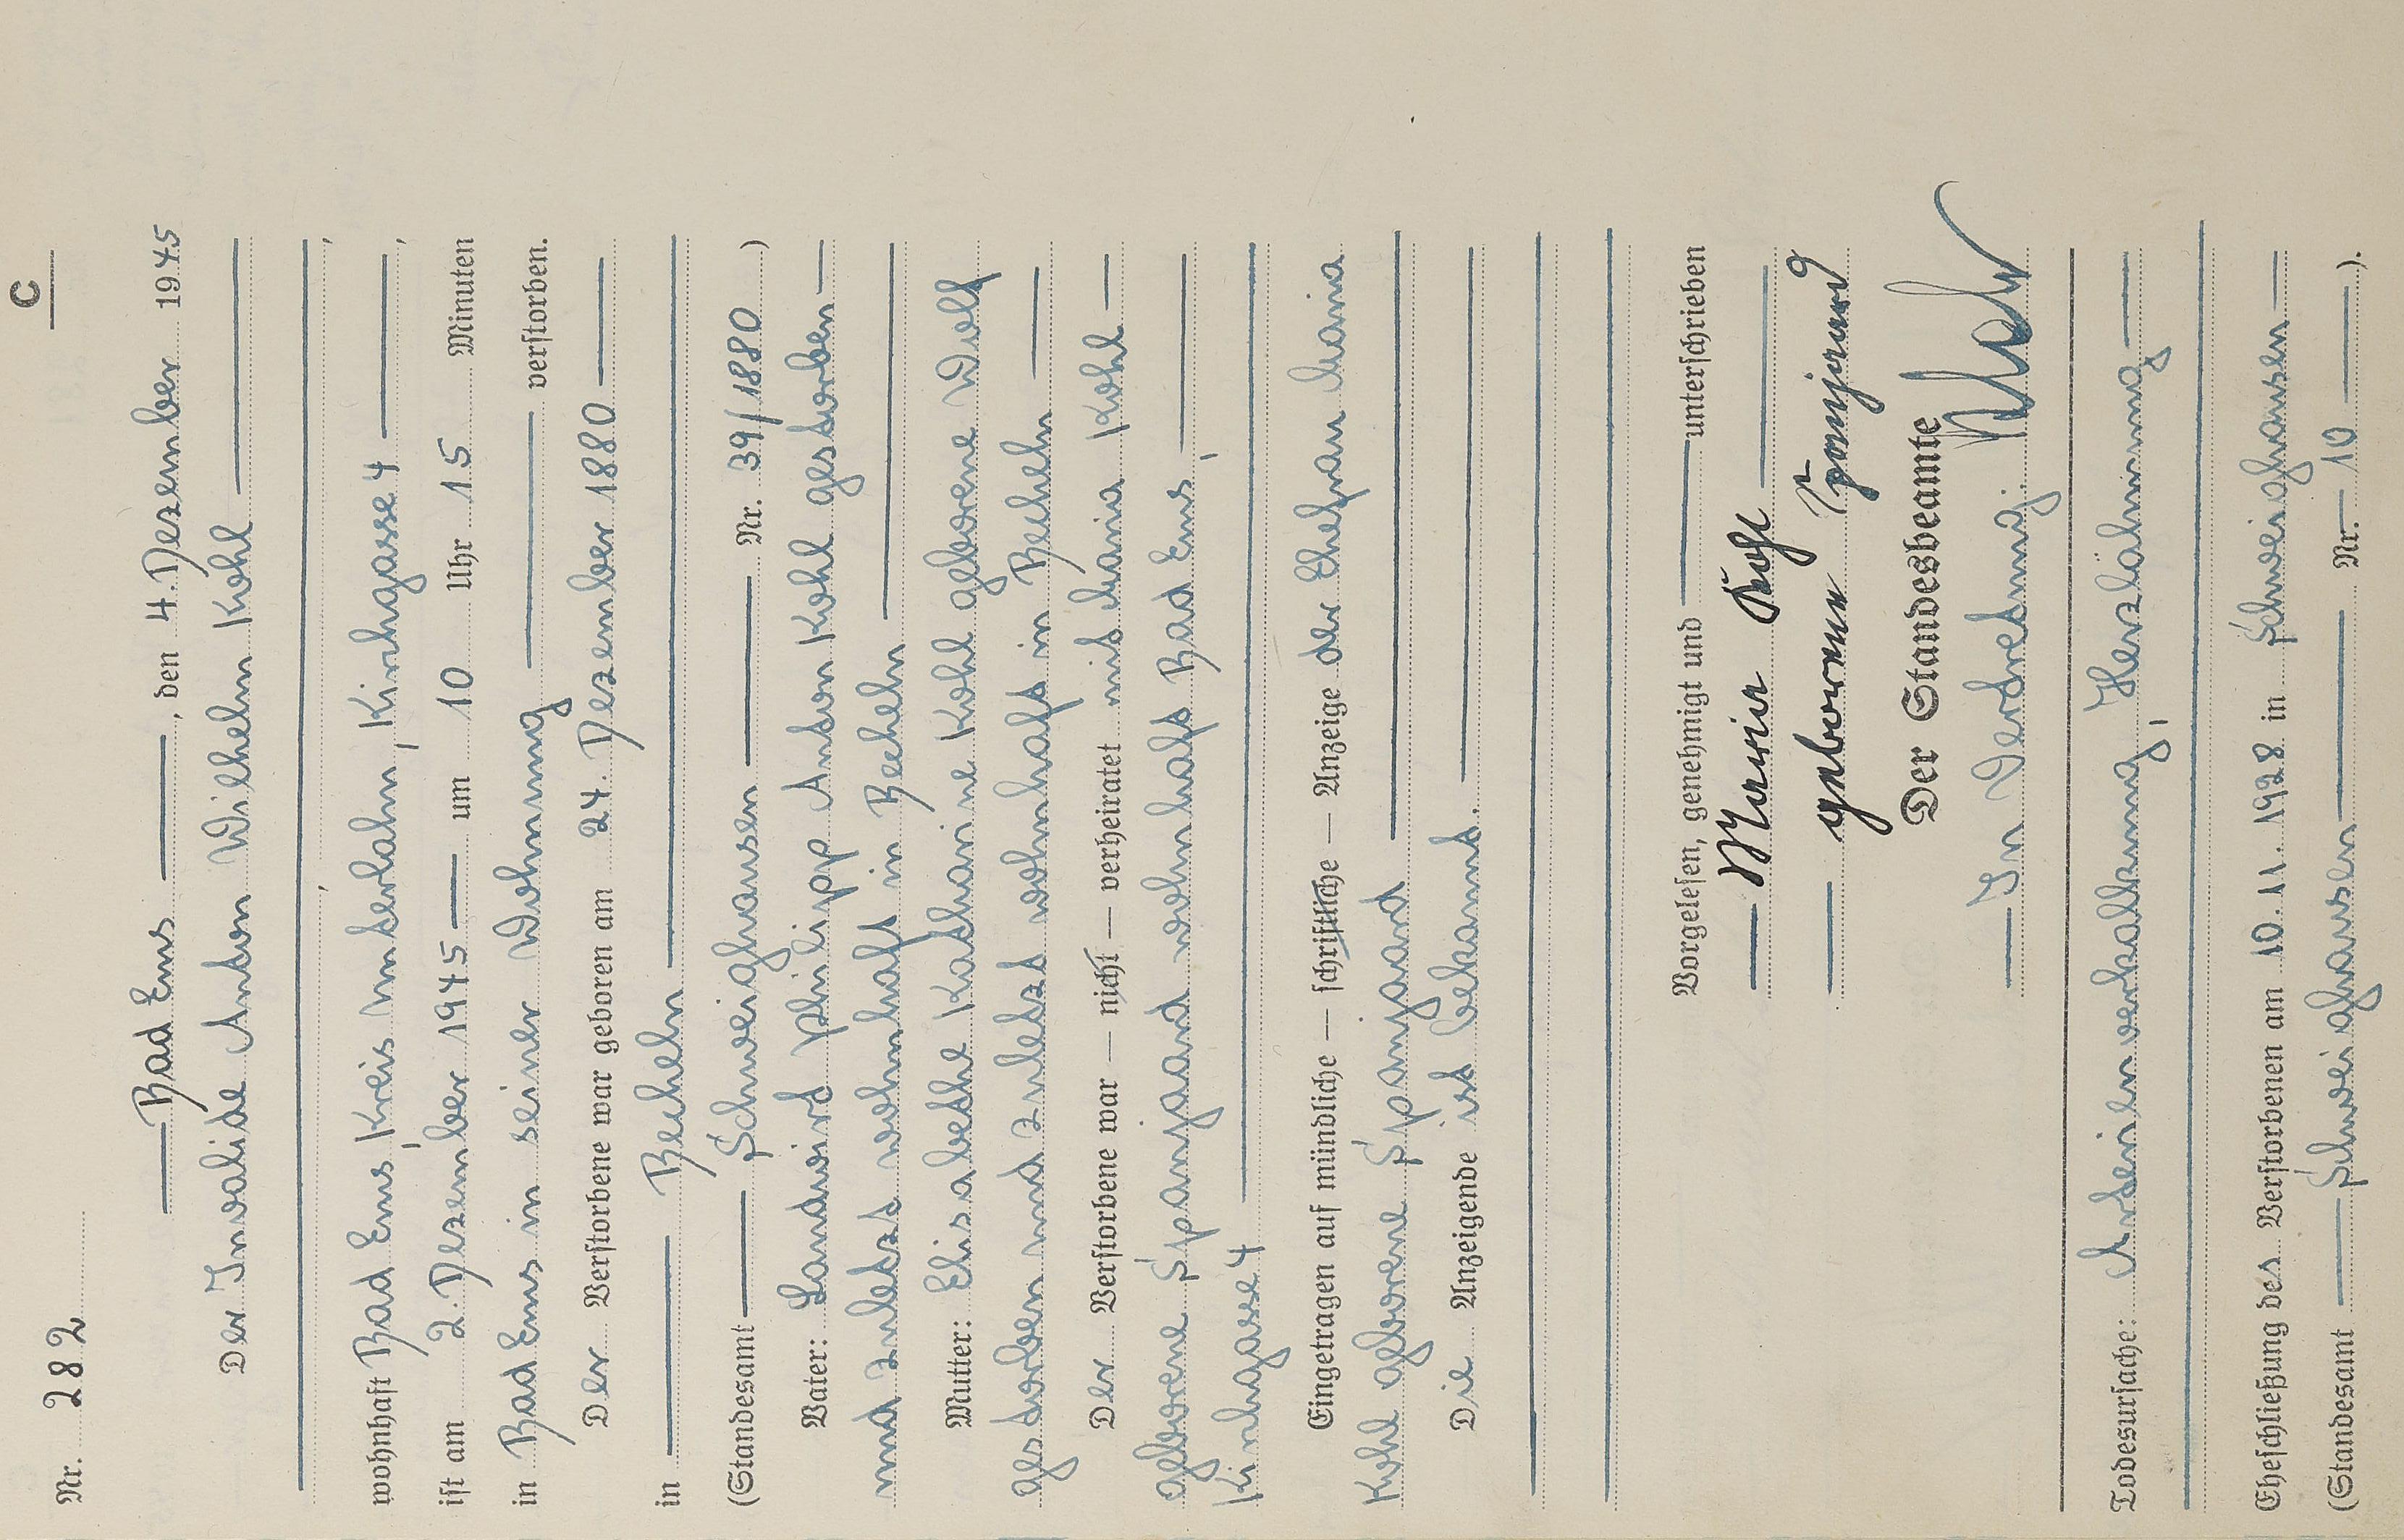 C
Nr. 282
Bad Ems, den 4. Dezember 1945
Der Invalide Anton Wilhelm Kohl
wohnhaft Bad Ems, Kreis Unterlahn, Kirchgasse 4,
ist am 2. Dezember 1945 um 10 Uhr 15 Minuten
in Bad Ems in seiner Wohnung verstorben.
Der Verstorbene war geboren am 24. Dezember 1880
in Becheln
(Standesamt Schweighausen Nr. 39/1880)
Vater: Landwirt Philipp Anton Kohl gestorben
und zuletzt wohnhaft in Becheln
Mutter: Elisabethe Katharine Kohl geborene Wolf
gestorben und zuletzt wohnhaft in Becheln
Der Verstorbene war — nicht — verheiratet mit Maria Kohl
geborene Spanjaard wohnhaft Bad Ems,
Kirchgasse 4
Eingetragen auf mündliche — schriftliche — Anzeige der Ehefrau Maria
Kohl geborene Spanjaard
Die Anzeigende ist bekannt.
Vorgelesen, genehmigt und unterschrieben
Maria Kohl
geborene Spanjaard
Der Standesbeamte
In Vertretung:
Todesursache: Arterienverkalkung, Herzlähmung
Eheschließung des Verstorbenen am 10.11.1928 in Schweighausen
(Standesamt Schweighausen Nr. 10).